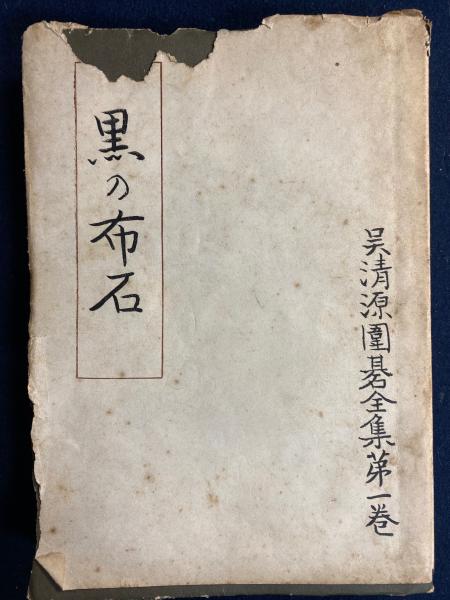 黒の布石
吴清源圍碁全集第一巻